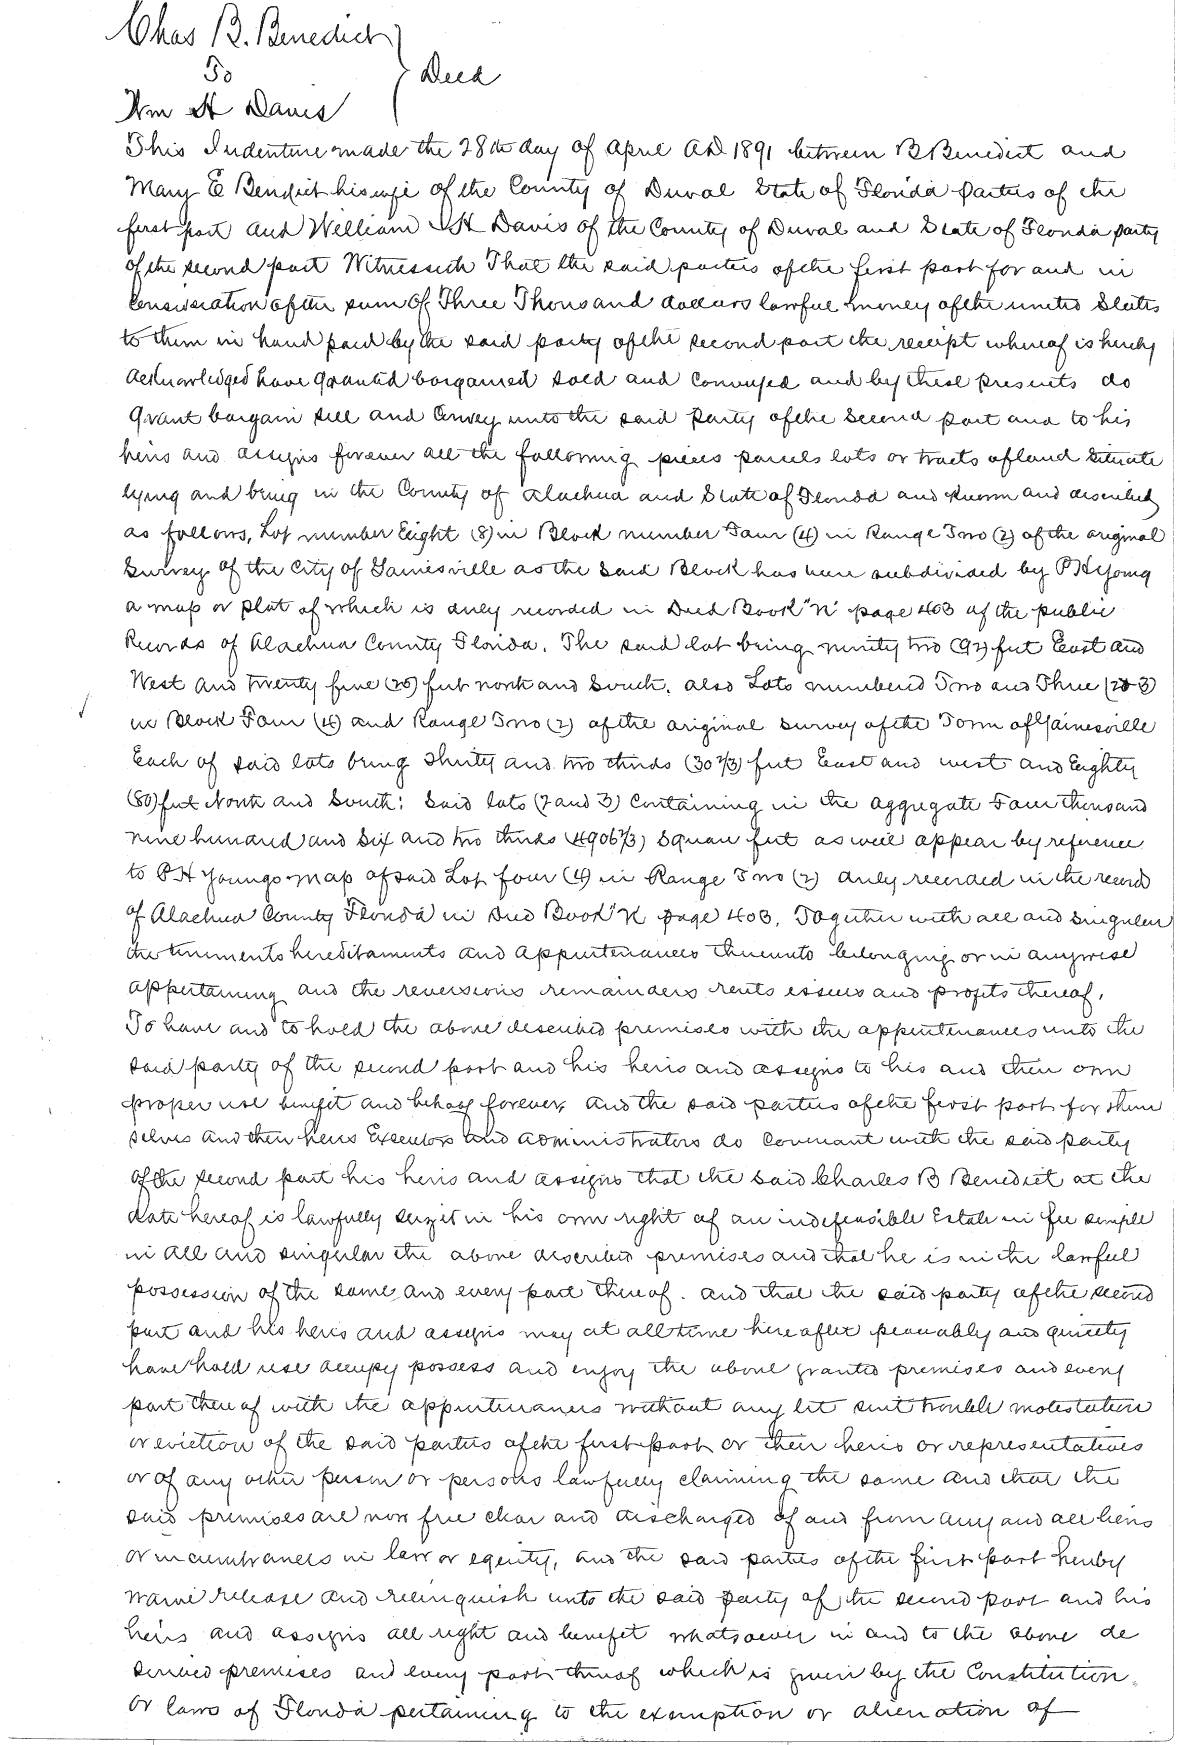 Chas B. Benedict
To } Deed
Wm H Davis
This Indenture made the 28th day of April AD 1891 between B Benedict and
Mary E Bendict his wife of the County of Duval State of Florida Parties of the
first part and William H Davis of the County of Duval and State of Florida party
of the second part Witnesseth That the said parties of the first part for and in
Consideration of the sum of Three Thousand dollars lawful money of the united States
to them in hand paid by the said party of the second part the receipt whereof is hereby
acknowledged have granted bargained sold and conveyed and by these presents do
Grant bargain sell and Convey unto the said party of the Second part and to his
heirs and assigns forever all the following pieces parcels lots or tracts of land Situate
lying and being in the County of Alachua and State of Florida and known and described
as follows, Lot number Eight (8) in Block number Four (4) in Range Two (2) of the original
Survey of the City of Gainesville as the said Block has been subdivided by P H Young
a map or plat of which is duly recorded in Deed Book "N" page 403 of the public
Records of Alachua County Florida. The said lot being ninety two (92) feet East and
West and twenty five (25) feet north and South. also Lots numbered Two and Three (2 & 3)
in Block Four (4) and Range Two (2) of the original survey of the Town of Gainesville
Each of said lots being Thirty and two thirds (30 2/3) feet East and west and Eighty
(80) feet North and South: Said lots (2 and 3) Containing in the aggregate Four thousand
nine hundred and Six and two thirds (4906 2/3) Square feet as well appear by reference
to P H Youngs map of said Lot four (4) in Range Two (2) duly recorded in the record
of Alachua County Florida in Deed Book "N" page 403. Together with all and Singular
the tenements hereditaments and appurtenances thereunto belonging or in anywise
appertaining and the reversions remainders rents issues and profits thereof.
To have and to hold the above described premises with the appurtenances unto the
said party of the second part and his heirs and assigns to his and their own
proper use benefit and behoof forever, and the said parties of the first part for them
selves and their heirs Executors and administrators do Covenant with the said party
of the second part his heirs and assigns that the said Charles B Benedict at the
date hereof is lawfully seized in his own right of an indefeasible Estate in fee simple
in all and singular the above described premises and that he is in the lawful
possession of the same and every part thereof. and that the said party of the second
part and his heirs and assigns may at all time hereafter peaceably and quietly
have hold use occupy possess and enjoy the above granted premises and every
part thereof with the appurtenances without any let suit trouble molestation
or eviction of the said parties of the first part or their heirs or representatives
or of any other person or persons lawfully claiming the same and that the
said premises are now free clear and discharged of and from any and all liens
or incumbrances in law or equity, and the said parties of the first part hereby
waive release and relinquish unto the said party of the second part and his
heirs and assigns all right and benefit whatsoever in and to the above de
scribed premises and every part thereof which is given by the Constitution
or laws of Florida pertaining to the exemption or alienation of